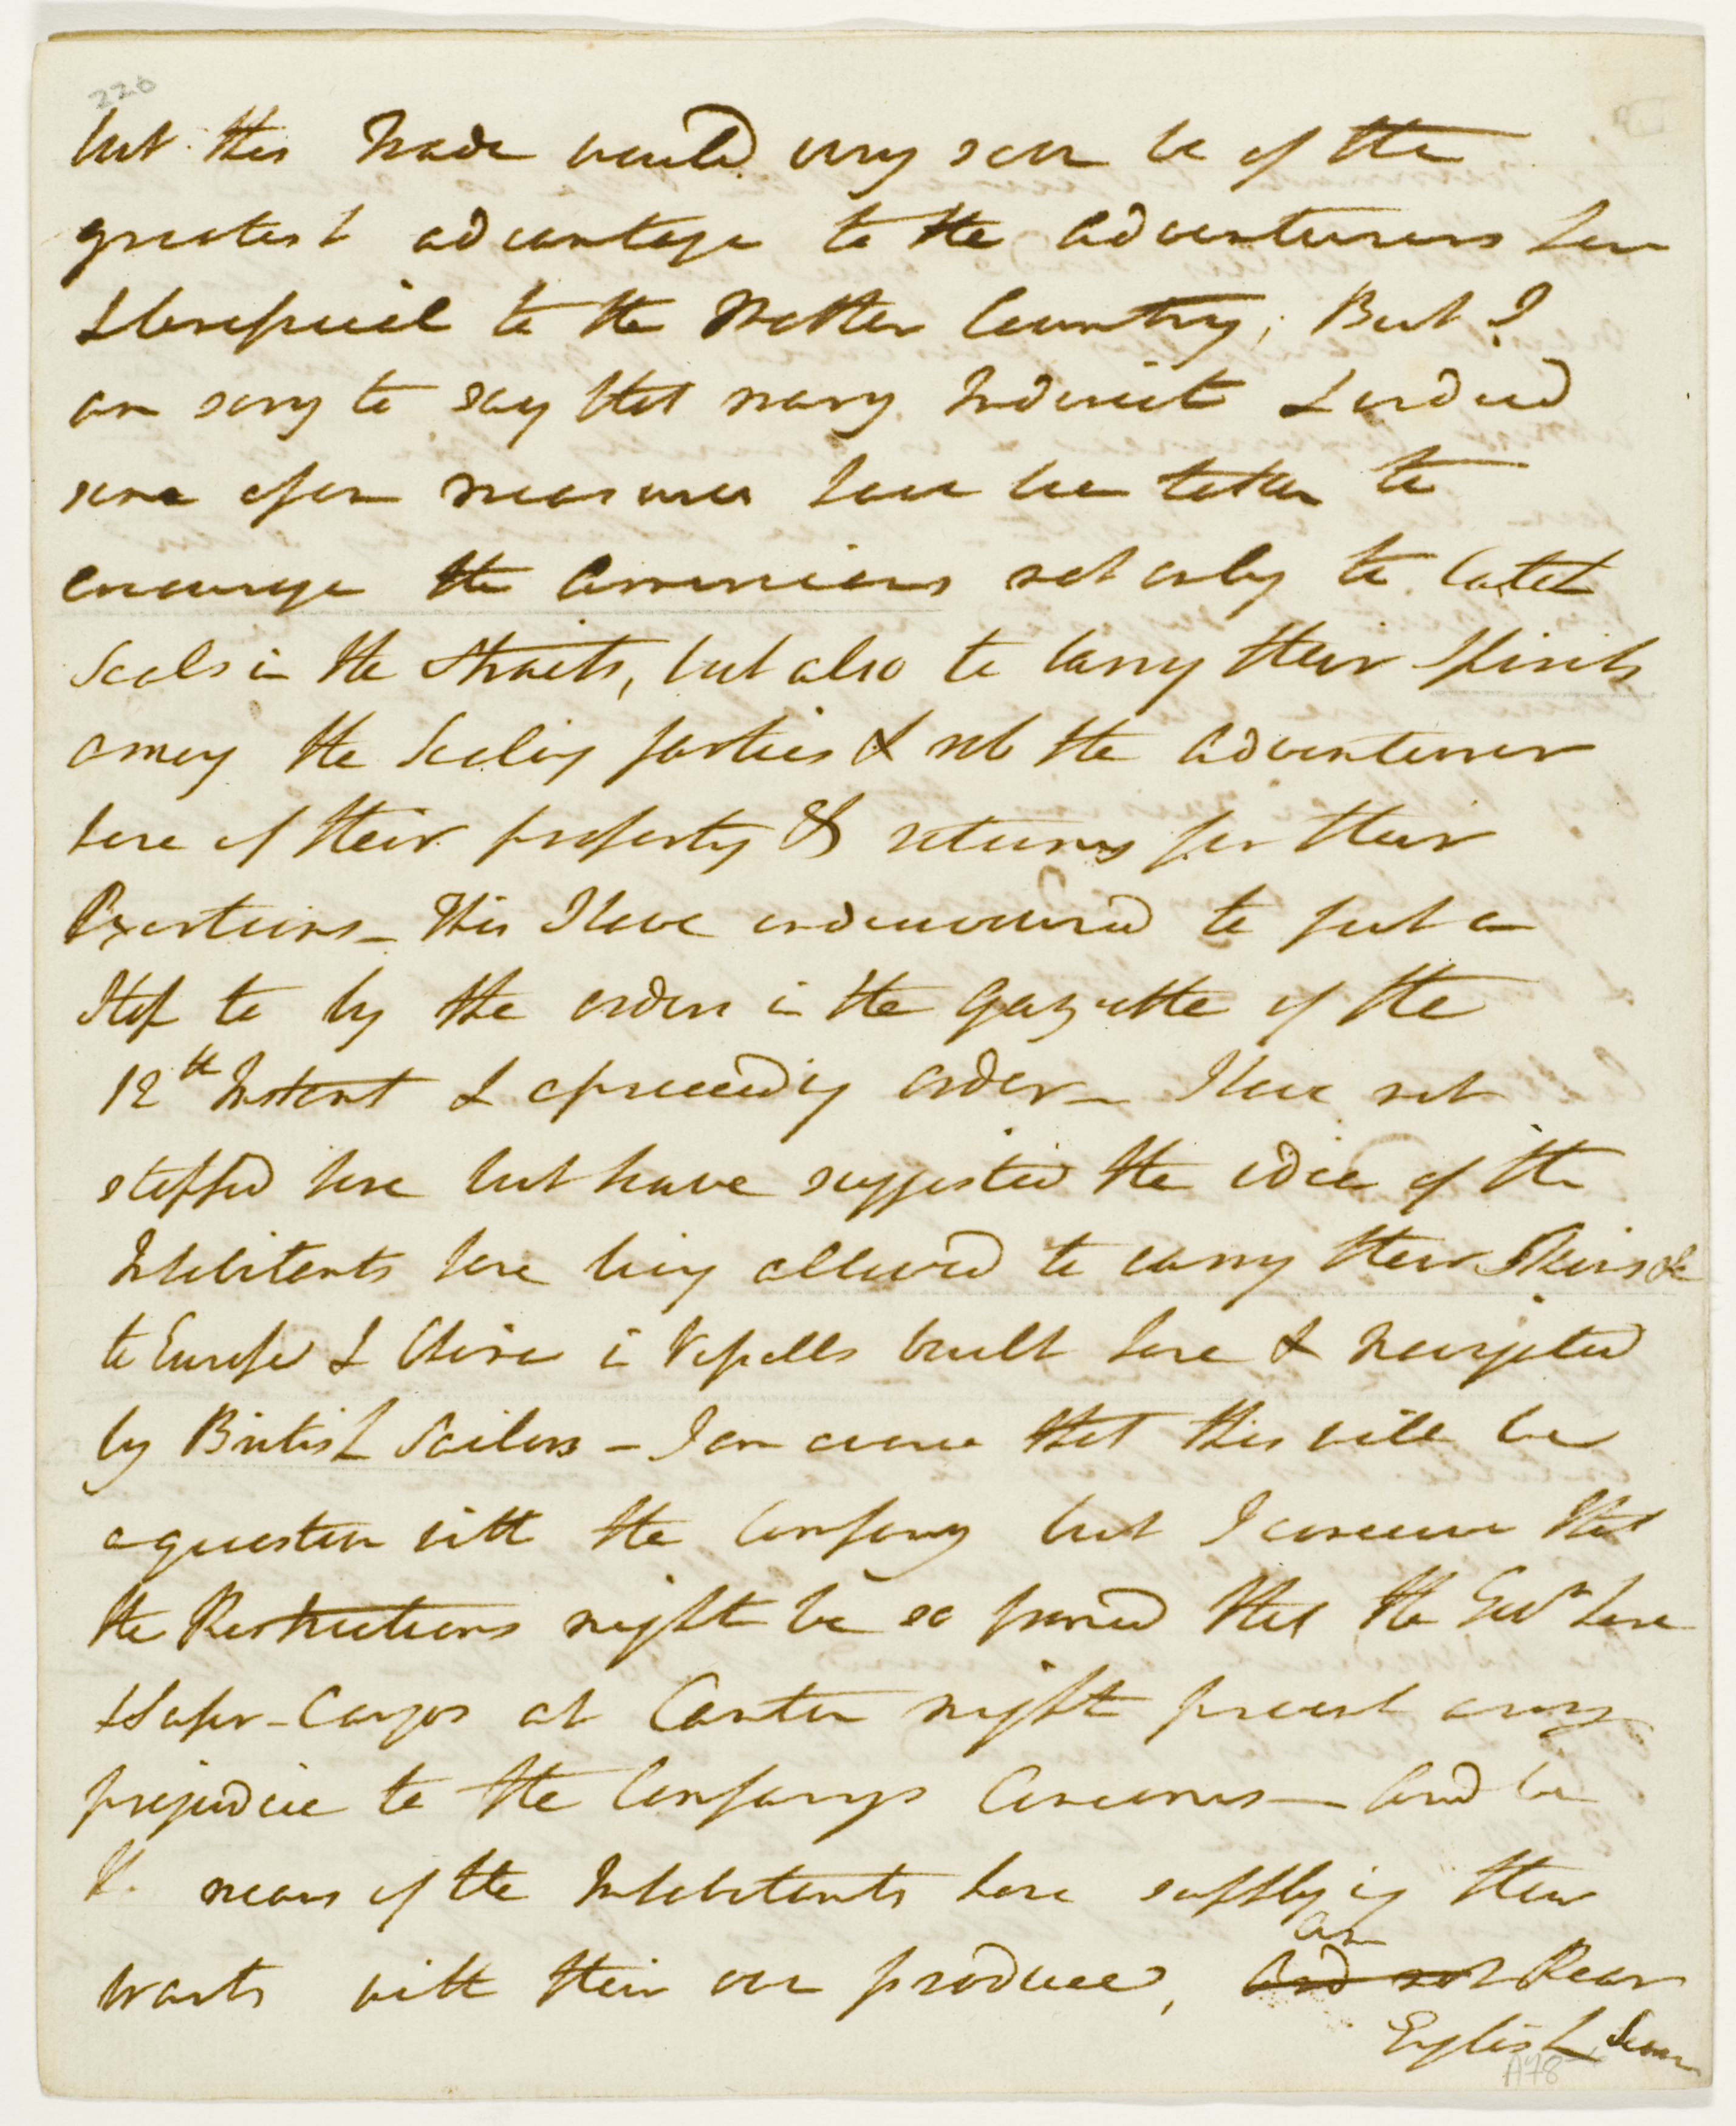 220
but this Trade would very soon be of the
greatest advantage to the adventurers here
& beneficial to the Mother Country; But I
am sorry to say that many Indirect & indeed
some open measures have been taken to
encourage the Americans not only to Catch
Seals in the Straits, but also to carry their Spirits
among the Sealing parties & rob the adventurer
here of their property & returns for their
Exertions_ This I have endeavoured to put a
Stop to by the orders in the Gazette of the
12th Instant & a preceeding order_ I have not
stopped here but have suggested the idea of the
Inhabitants here being allowed to carry their Skins &c
to Europe & China in Vessells built here & navigated
by British Sailors - I am aware that this will be
a question with the Company but I conceive that
the Restrictions might be so framed that the Govr here
& Super-Cargos at Canton might prevent any
prejudice to the Companys Concerns_ and be
means of the Inhabitants here supplying their
wants with their own produce, and not Rear
an
English Seamen
A78